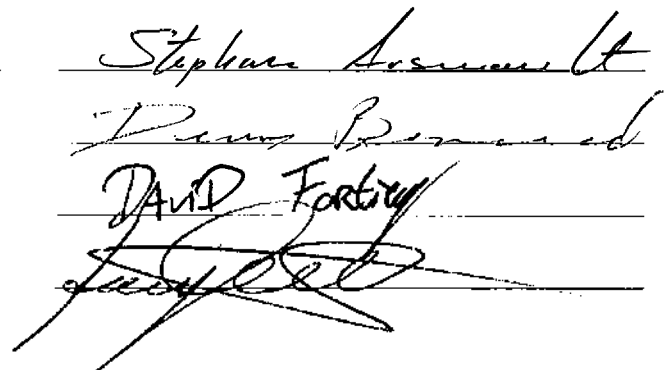 Stephane Arsenault
Denis Bernard
DAVID Fortin